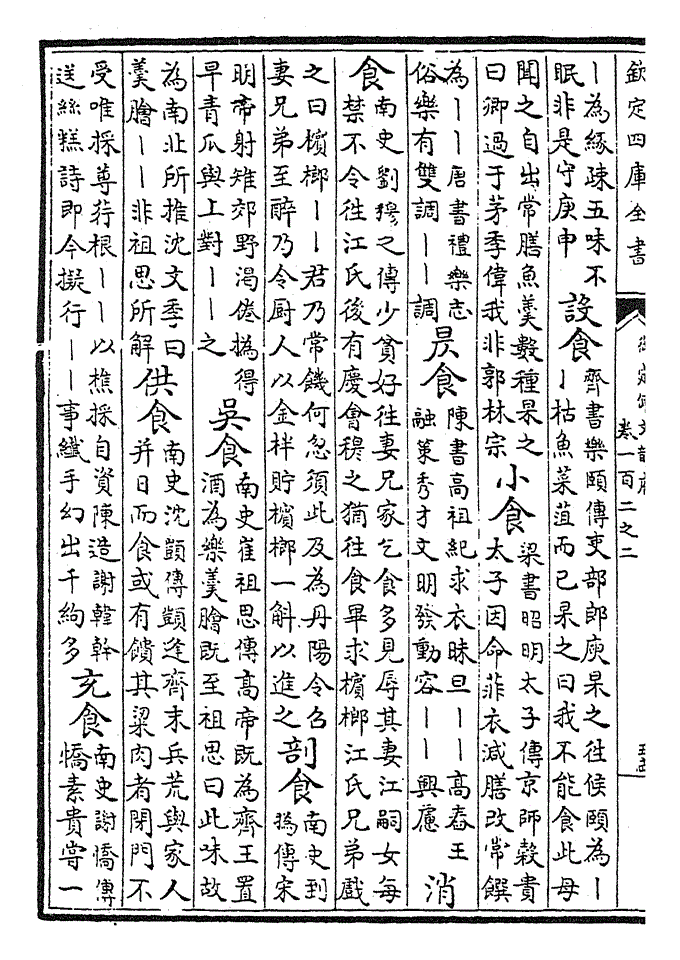 欽定四庫全書
御定佩文韻府
卷一百二之二
丨為緣疎五味不
眠非是守庚申
設食
齊書樂頤傳吏部郎庾杲之往侯頤為丨
丨枯魚菜菹而已杲之曰我不能食此母
聞之自出常膳魚羮數種杲之
曰卿過于茅季偉我非郭林宗
小食
梁書昭明太子傳京師穀貴
太子因命菲衣減膳改常饌
為丨丨唐書禮樂志
俗樂有雙調丨丨調
昃食
陳書高祖紀求衣昧旦丨丨高舂王
融策秀才文明發動容丨丨興慮
消
食
南史劉穆之傳少貧好往妻兄家乞食多見辱其妻江嗣女每
禁不令往江氏後有慶會穆之猶往食畢求檳榔江氏兄弟戲
之曰檳榔丨丨君乃常饑何忽須此及為丹陽令召
妻兄弟至醉乃令厨人以金柈貯檳榔一斛以進之
剖食
南史到
撝傳宋
明帝射雉郊野渴倦撝得
早青瓜與上對丨丨之
吳食
南史崔祖思傳高帝既為齊王置
酒為樂羮膾既至祖思曰此味故
為南北所推沈文季曰
羮膾丨丨非祖思所解
供食
南史沈顗傳顗逢齊末兵荒與家人
并日而食或有饋其粱肉者閉門不
受唯採蓴荇根丨丨以樵採自資陳造謝韓幹
送絲糕詩即今擬行丨丨事纖手幻出千絇多
充食
南史謝憍傳
憍素貴嘗一